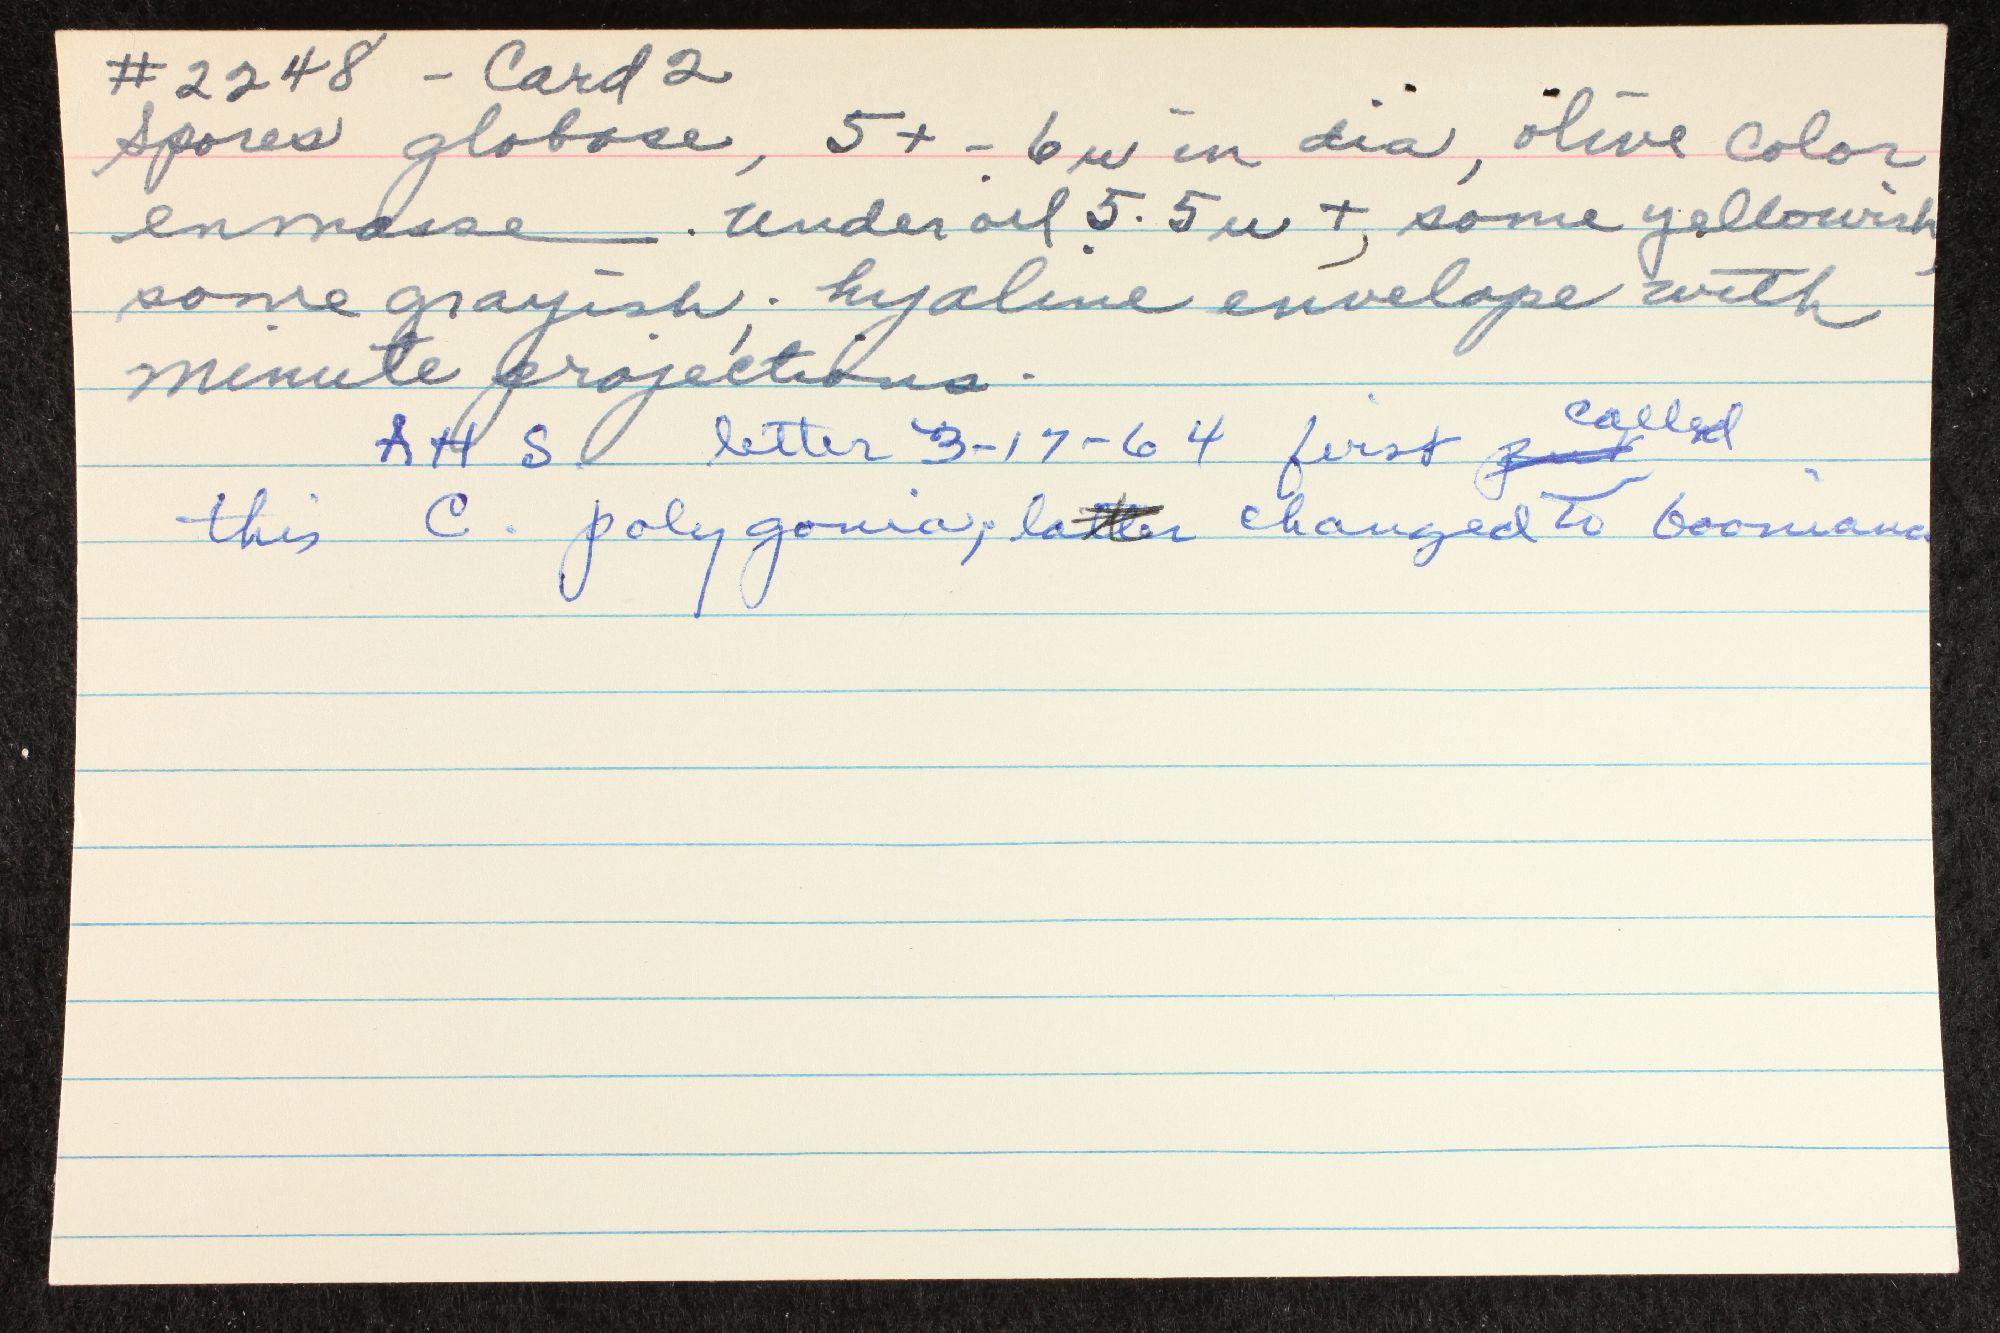 #2248 - Card 2
Spores globose, 5+ - 6u in dia, olive color
enmasse. Under oil 5.5u +, some yellowish,
some grayish; hyaline envelope with
minute projections.
AHS letter 3-17-64 first called
this C. polygonia; later changed to booniana